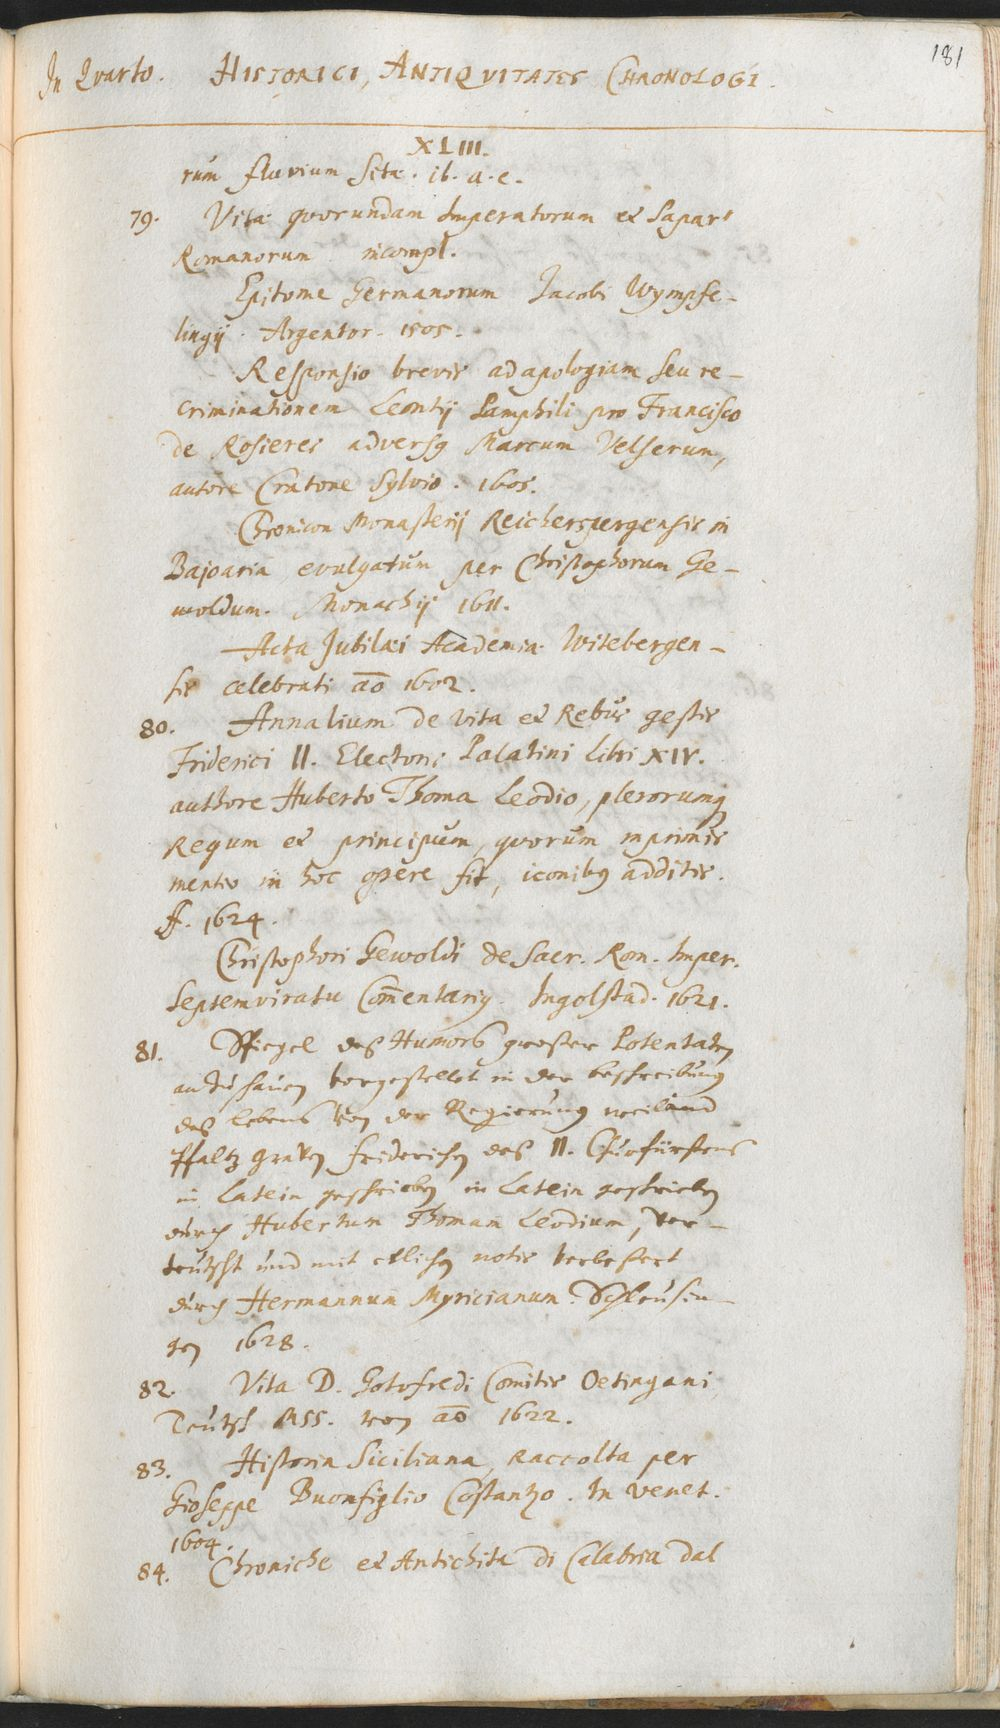 181
In Qvarto. HISTORICI, ANTIQVITATES CHRONOLOGI.
XLIII.
rum fluvium sita. ib. a. e.
79. Vita quorundam Imperatorum et
Romanorum incompl.
Epitome Germanorum Jacobi Wympfe-
lingij. Argentor. 1505.
Responsio brevis ad apologiam seu re-
criminationem Leontij Pamphili pro Francisco
de Rosieres adversq Marcum Velserum,
autore Cratone Sylvio. 1605.
Chronicon Monasterij Reicherspergensis in
Bajoaria evulgatum per Christophorum Ge-
woldum. Monachij 1611.
Acta Jubilæi Academia Witebergen-
sis celebrati ao 1602.
80. Annalium de vita et Rebus gestis
Friderici II. Electoris Palatini Libri XIV.
authore Huberto Thoma Leodio, plerorumq
Regum et principum, quorum inprimis
mentio in hoc opere fit, iconibq additis.
ff. 1624.
Christophori Gewoldi de Sacr. Rom. Imper.
Septemviratu Commentariq. Ingolstad. 1621.
81. Spiegel deß Humors grosser Potentaten
anzuschauen vorgestellet in der beschreibung
deß lebens von der Regierung weiland
Pfaltz graven Friderichen deß II. Churfürstens
in Latein geschrieben in Latein geschrieben
durch Hubertum Thomam Leodium, ver-
teutscht und mit etlichen notis verbessert
durch Hermannum Myricianum. Schleusin-
gen 1628.
82. Vita D. Gotofredi Comitis Oetingani
Teutsch MSS. von ao 1622.
83. Historia Siciliana, Raccolta per
Gioseppe Buonfiglio Costanzo. In Venet.
1604.
84. Chroniche et Antichita di Calabria dal